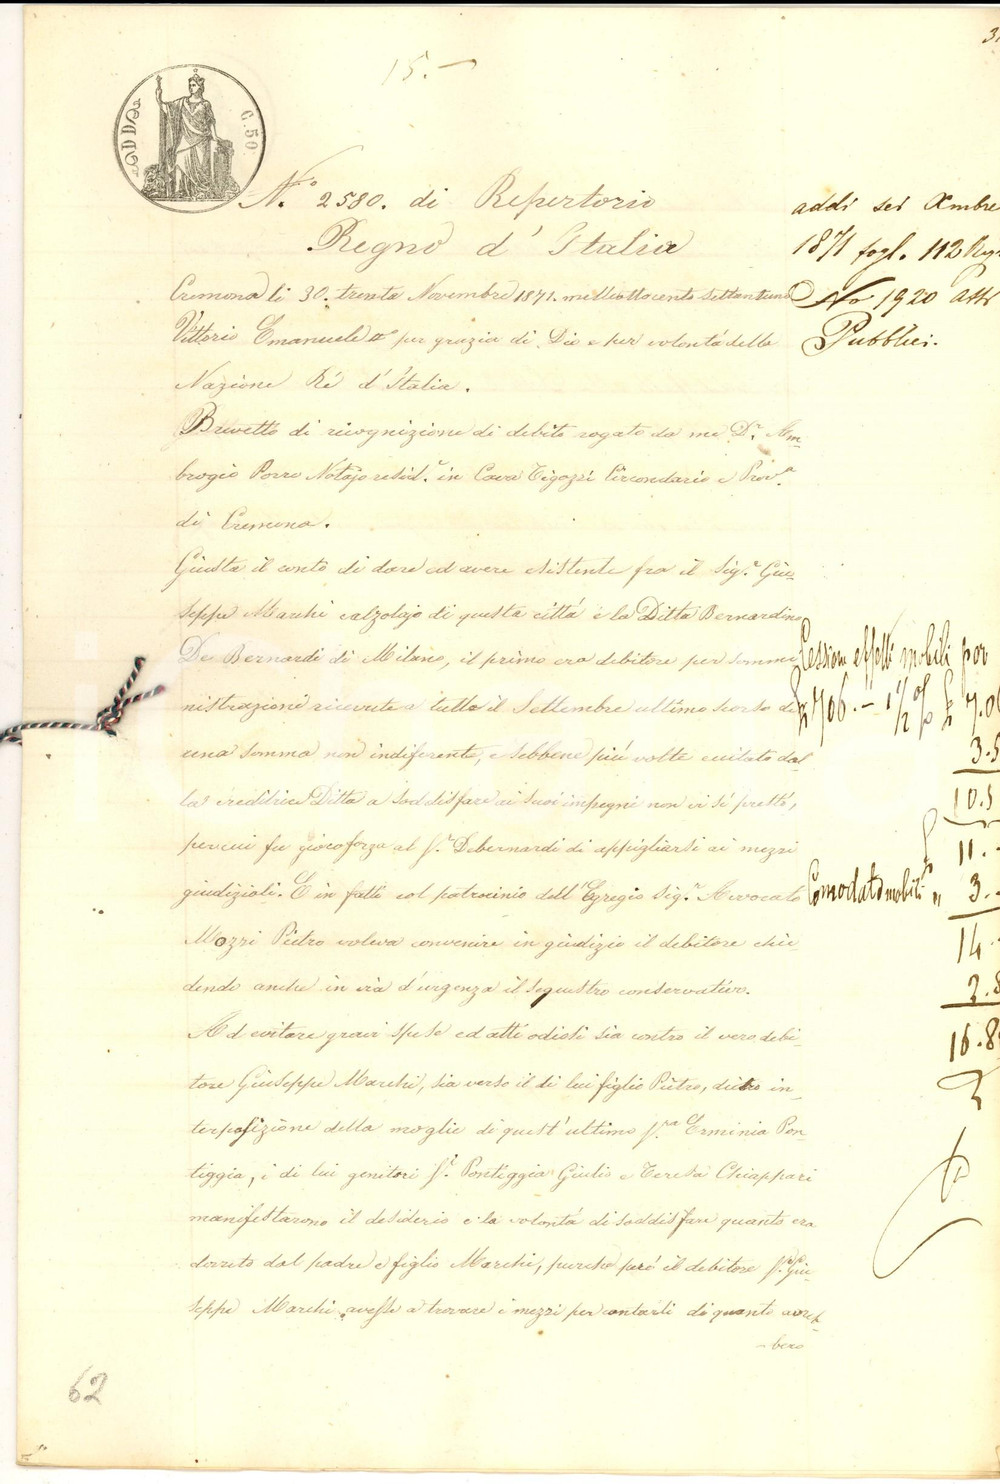 15.-
C. 50
N.º 2580. di Repertorio
Regno d'Italia
Cremona li 30. trenta Novembre 1871. mille ottocento settantuno
Vittorio Emanuele IIº per grazia di Dio e per volontà della
Nazione Ré d'Italia.
Brevetto di ricognizione di debito rogato da me D.r Am-
brogio Porro Notajo resid.e in Cava Tigozzi Circondario e Prov.a
di Cremona.
Giusta il conto di dare ed avere esistente fra il Sig.r Giu-
seppe Marchi calzolajo di questa città e la Ditta Bernardino
De Bernardi di Milano, il primo era debitore per sommi-
nistrazioni ricevute a tutto il Settembre ultimo scorso di
una somma non indiferente, e sebbene più volte eccitato dal-
la creditrice Ditta a soddisfare ai suoi impegni non vi si prestò,
percui fu giocoforza al S.r Debernardi di appigliarsi ai mezzi
giudiziali. E in fatti col patrocinio dell'Egregio Sig.r Avvocato
Mozzi Pietro voleva convenire in giudizio il debitore chie-
dendo anche in via d'urgenza il sequestro conservativo.
Ad evitare gravi spese ed atti odiosi sia contro il vero debi-
tore Giuseppe Marchi, sia verso il di lui figlio Pietro, dietro in-
terposizione della moglie di quest'ultimo S.ra Erminia Pon-
tiggia, i di lui genitori S.i Pontiggia Giulio e Teresa Chiappari
manifestarono il desiderio e la volontà di soddisfare quanto era
dovuto dal padre e figlio Marchi, purchè però il debitore S.r Giu-
seppe Marchi avesse a trovare i mezzi per cautarli di quanto avreb-
bero
addi sei Xmbre
1871 fogl. 112 Reg.
No 1920 Atti
Pubblici.
Cessione effetti mobili per
£ 706.- 1 1/2 % £ 7.06
3.5
10.5
11.-
Comodato mobili " 3.-
14.-
2.8
16.8
62